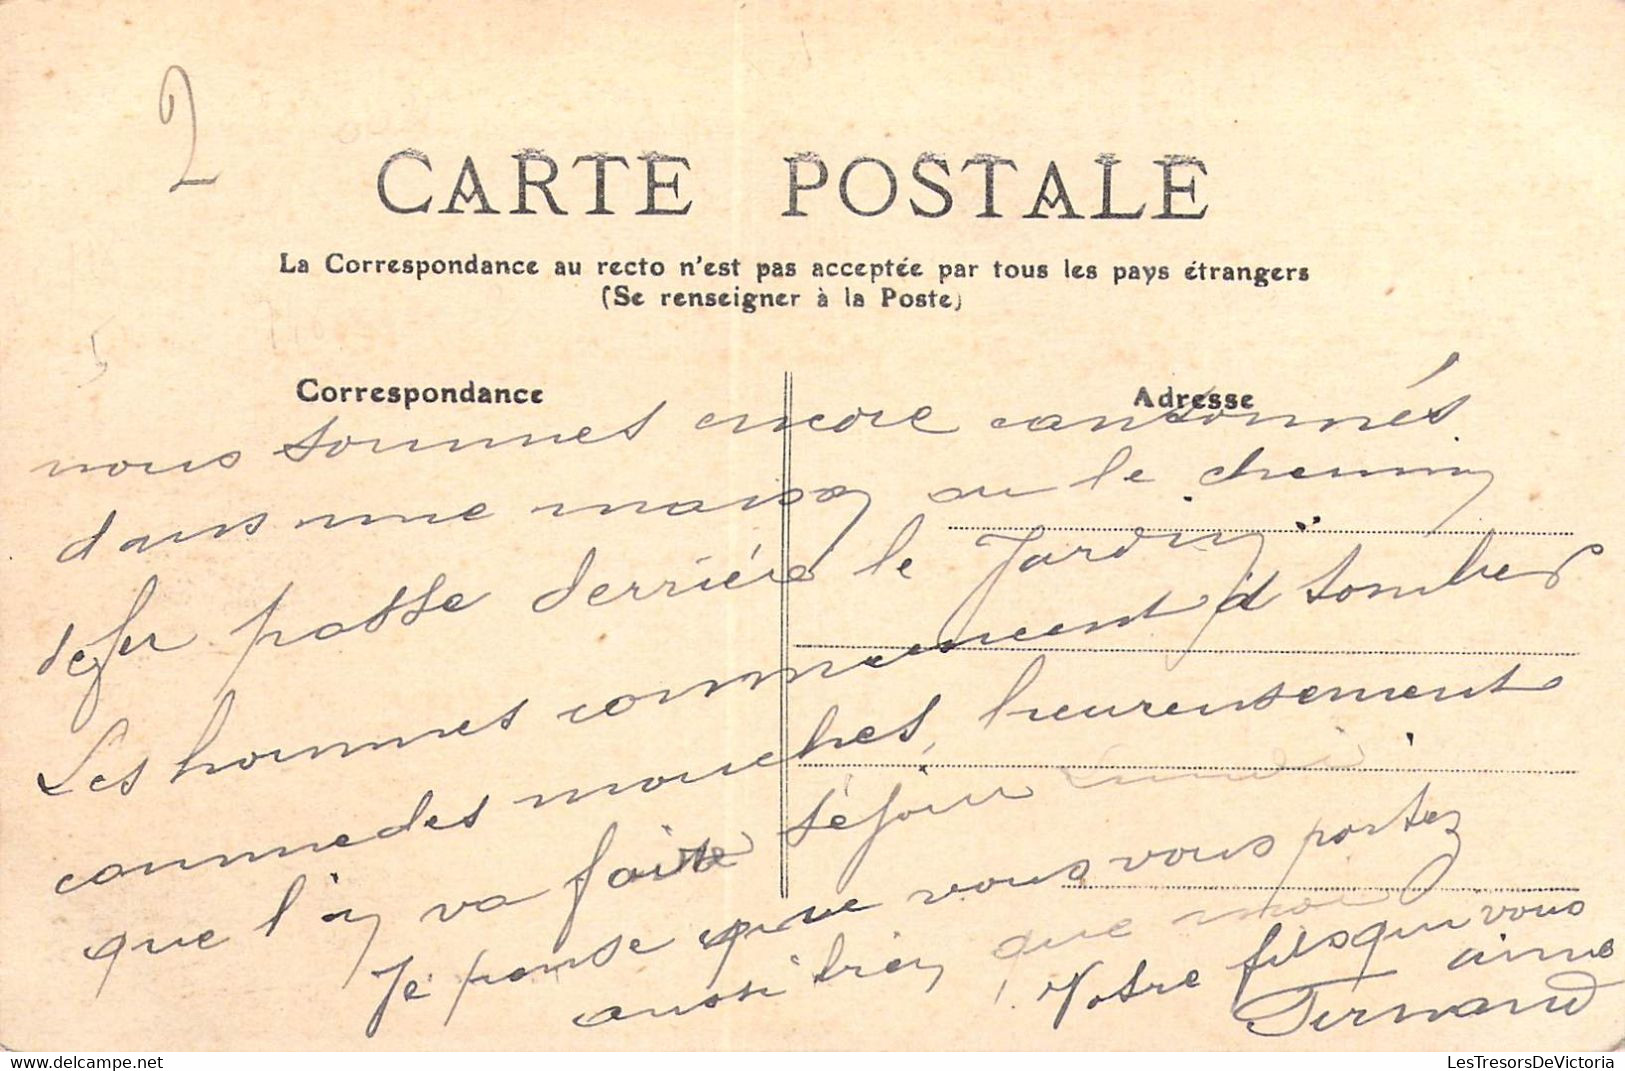 2
CARTE POSTALE
La Correspondance au recto n'est pas acceptée par tous les pays étrangers
(Se renseigner à la Poste)
Correspondance
Adresse
nous sommes encore cantonnés
dans une maison ou le chemin
defer passe derrière le Jardin
Les hommes commencent à tomber
commedes mouches, heureusement
que l'on va faire séjour Lundi.
Je pense que vous vous portez
aussi bien que moi
Votre fils qui vous
aime
Fernand
LesTresorsDeVictoria